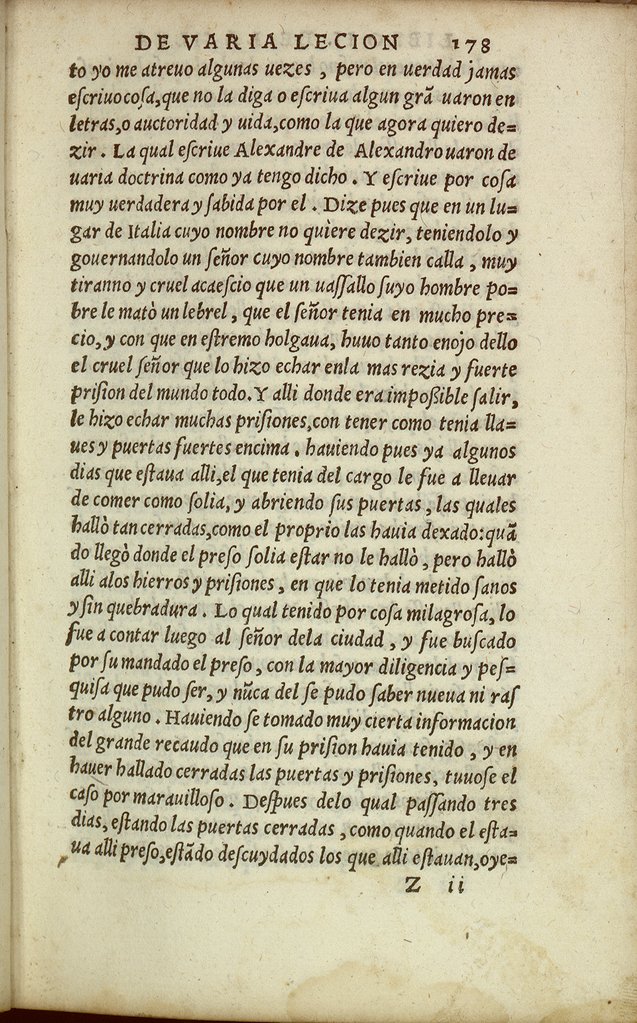 DE VARIA LECION 178
to yo me atreuo algunas uezes , pero en uerdad jamas
eſcriuocoſa,que no la diga o eſcriua algun grã uaron en
letras,o auctoridad y uida,como la que agora quiero de=
zir . La qual eſcriue Alexandre de Alexandro uaron de
uaria doctrina como ya tengo dicho . Y eſcriue por coſa
muy uerdadera y ſabida por el . Dize pues que en un lu=
gar de Italia cuyo nombre no quiere dezir, teniendolo y
gouernandolo un ſeñor cuyo nombre tambien calla , muy
tiranno y cruel acaeſcio que un uaſſallo ſuyo hombre po=
bre le matò un lebrel , que el ſeñor tenia en mucho pre=
cio, y con que en eſtremo holgaua, huuo tanto enojo dello
el cruel ſeñor que lo hizo echar enla mas rezia y fuerte
priſion del mundo todo. Y alli donde era impoßible ſalir,
le hizo echar muchas priſiones,con tener como tenia lla=
ues y puertas fuertes encima . hauiendo pues ya algunos
dias que eſtaua alli,el que tenia del cargo le fue a lleuar
de comer como ſolia, y abriendo sus puertas , las quales
hallò tan cerradas,como el proprio las hauia dexado:quã
do llegò donde el preſo ſolia eſtar no le hallò , pero hallò
alli alos hierros y priſiones , en que lo tenia metido ſanos
y ſin quebradura . Lo qual tenido por coſa milagroſa, lo
fue a contar luego al ſeñor dela ciudad , y fue buſcado
por ſu mandado el preſo , con la mayor diligencia y peſ=
quiſa que pudo ſer, y nũca del ſe pudo ſaber nueua ni raſ
tro alguno . Hauiendo ſe tomado muy cierta informacion
del grande recaudo que en ſu priſion hauia tenido , y en
hauer hallado cerradas las puertas y priſiones, tuuoſe el
caſo por marauilloſo . Deſpues delo qual paſſando tres
dias, eſtando las puertas cerradas , como quando el eſta=
ua alli preſo,eſtãdo deſcuydados los que alli eſtauan, oye=
Z ii